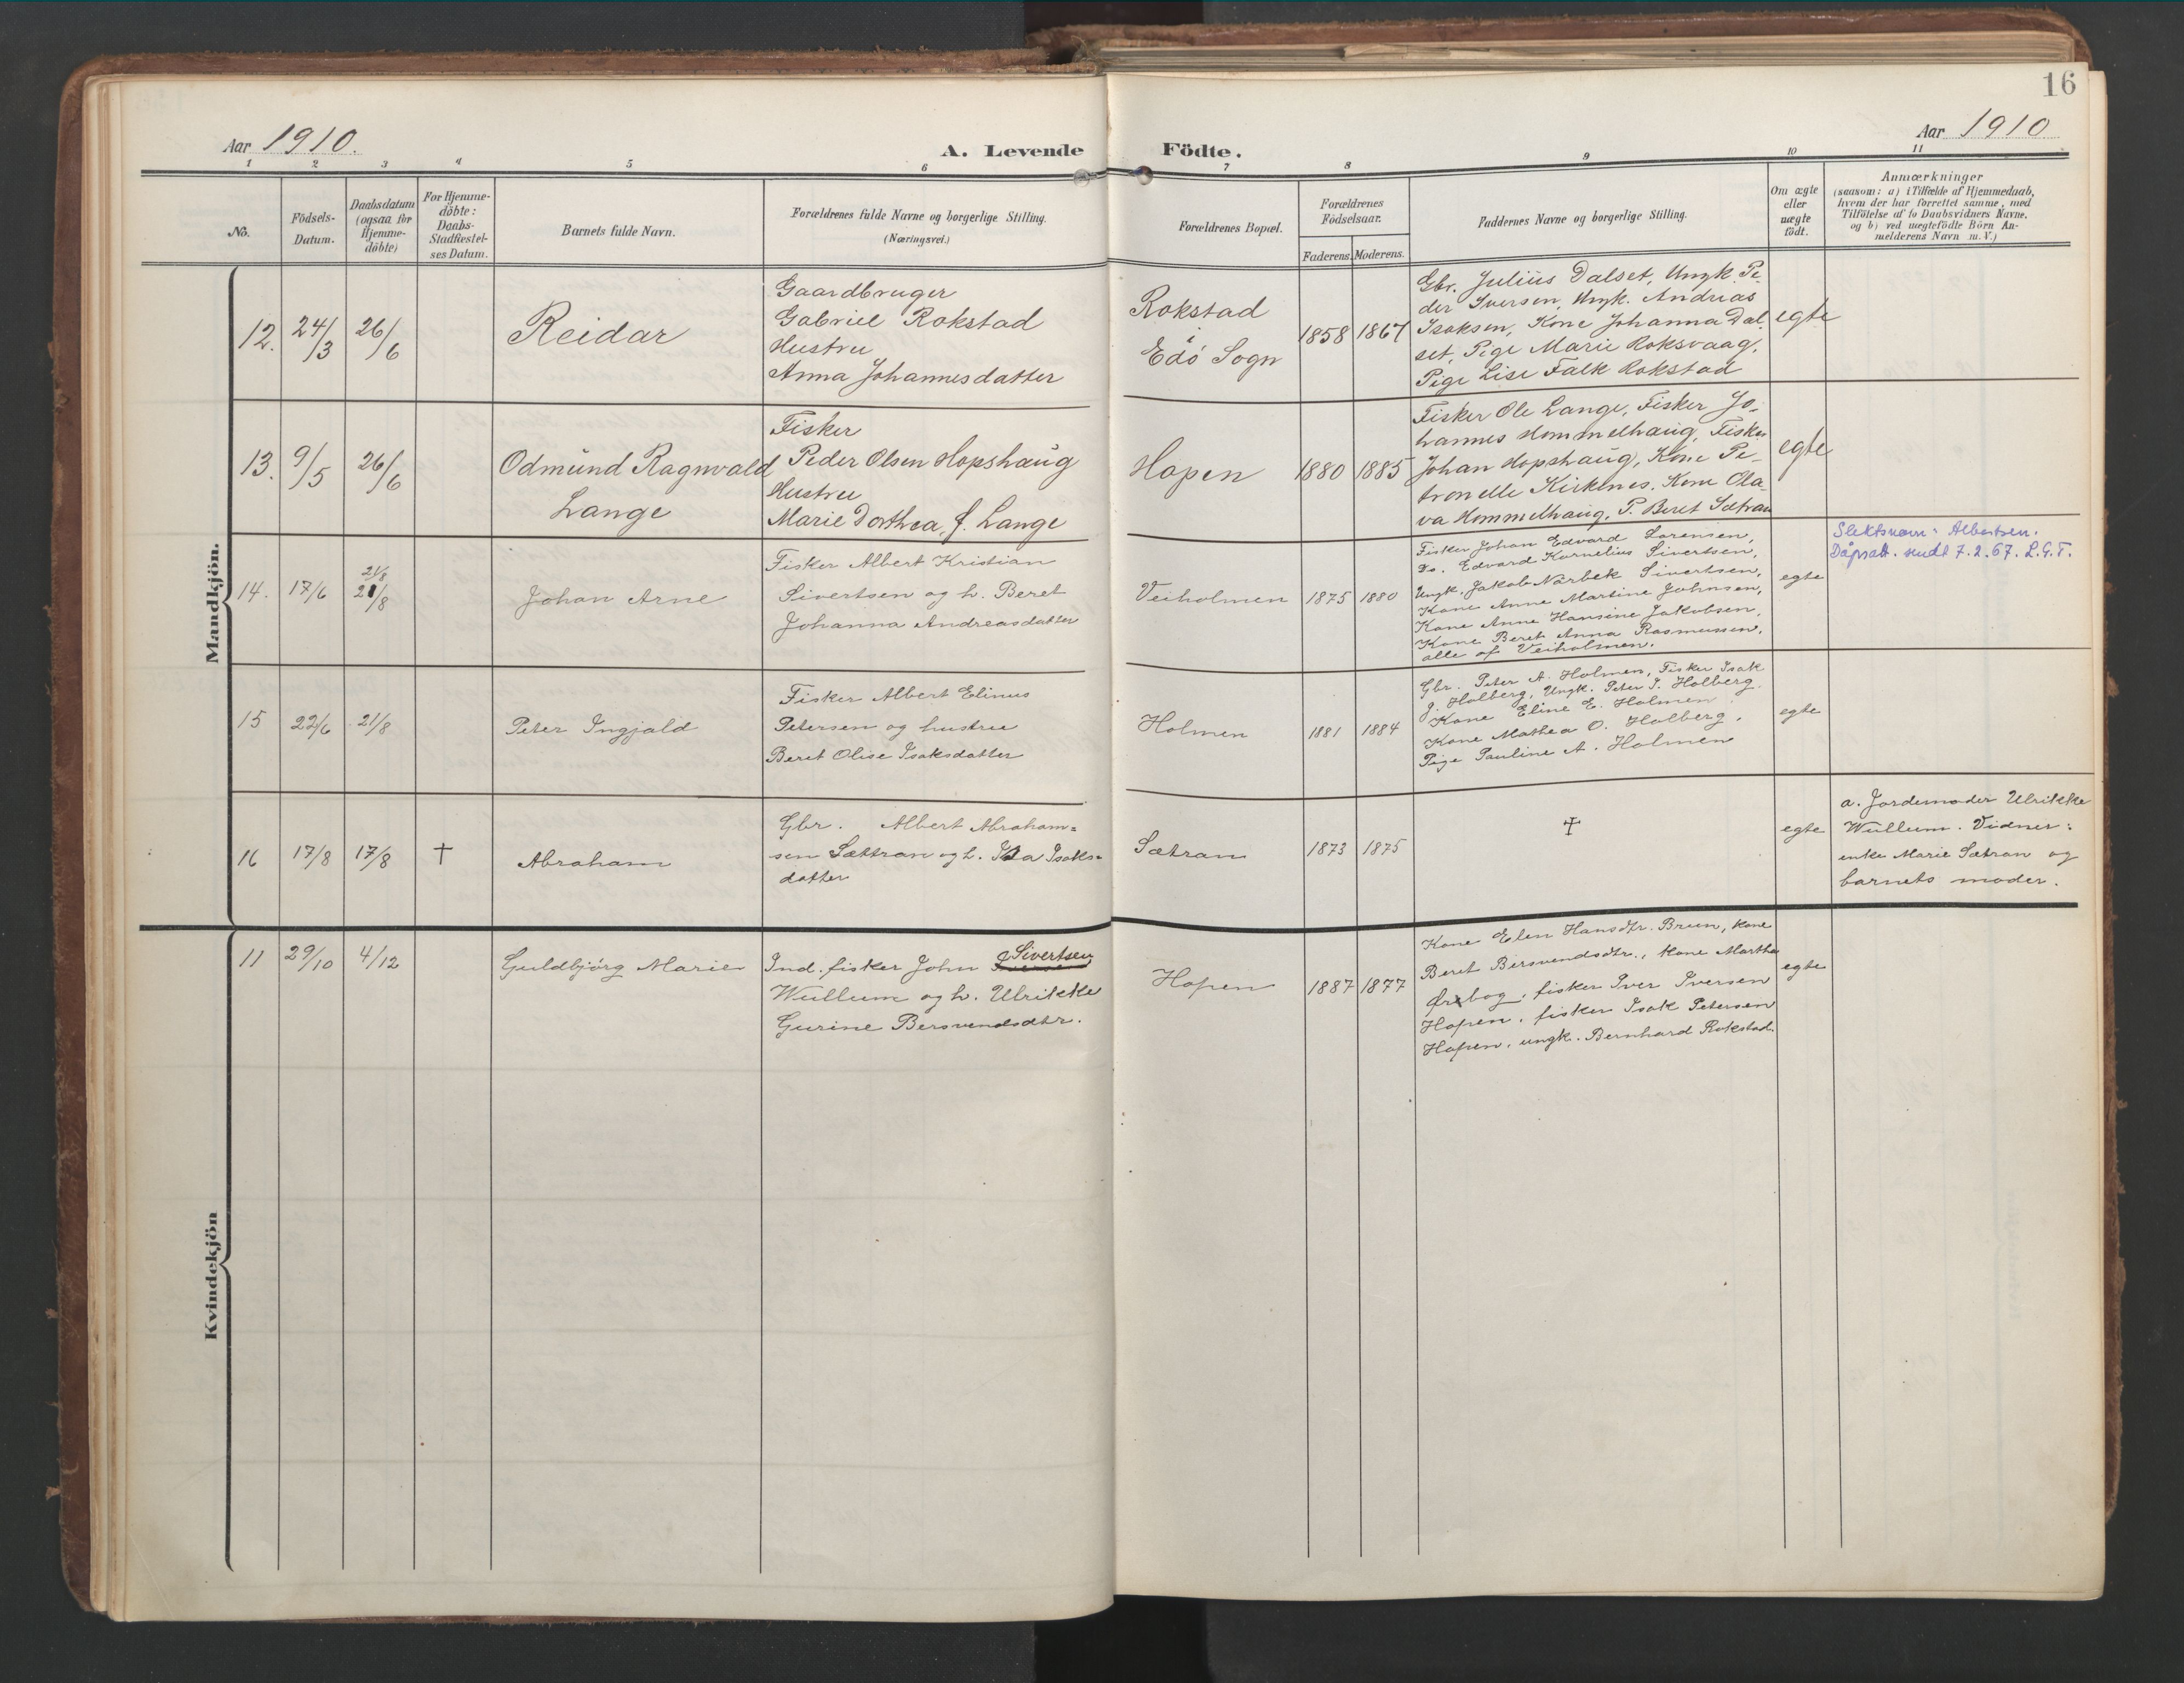 16
Aar 1910.
A. Levende Födte.
Aar 1910
1 2 3 4 5 6 7 8 9 10 11
No.
Födsels-
Datum.
Daabsdatum
(ogsaa for
Hjemme-
döbte)
For Hjemme-
döbte:
Daabs-
Stadfæstel-
ses Datum.
Barnets fulde Navn.
Forældrenes fulde Navne og borgerlige Stilling.
(Næringsvei.)
Forældrenes Bopæl.
Forældrenes
Födselsaar.
Faderens. Moderens.
Faddernes Navne og borgerlige Stilling.
Om ægte
eller
uægte
födt.
Anmærkninger
(saasom: a) i Tilfælde af Hjemmedaab,
hvem der har forrettet samme, med
Tilföielse af to Daabsvidners Navne,
og b) ved uægtefödte Börn An-
melderens Navn m. V.)
Mandkjön.
12. 24/3 26/6
Reidar
Gaardbruger
Gabriel Rokstad
Hustru
Anna Johannesdatter
Rokstad
i
Edö Sogn
1858 1867
Gbr. Julius Dalset, Ungk. Pe-
der Iversen, Ungk. Andreas
Isaksen, Kone Johanna Dal-
set, Pige Marie Roksvaag,
Pige Lise Falk Rokstad
egte
13. 9/5 26/6
Odmund Ragnvald
Lange
Fisker
Peder Olsen Hopshaug
Hustru
Marie Dorthea, f. Lange
Hopen
1880 1885
Fisker Ole Lange, Fisker Jo-
hannes Hommelhaug, Fisker
Johan Hopshaug, Kone Pe-
tronelle Kirknes, Kone Ola-
va Hommelhaug, P. Beret Sætran
egte
14. 17/6 21/8
21/8
Johan Arne
Fisker Albert Kristian
Sivertsen og h. Beret
Johanna Andreasdatter
Veiholmen
1875 1880
Fisker Johan Edvard Lorensen,
Do. Edvard Kornelius Sivertsen,
Ungk. Jakob Narbek Sivertsen,
Kone Anne Martine Johnsen,
Kone Anne Hansine Jakobsen,
Kone Beret Anna Rasmussen,
alle af Veiholmen.
egte
Slektsnavn: Albertsen.
Dåpsatt. sendt 7.2.67. L.G.T.
15 22/6 21/8
Peter Ingjald
Fisker Albert Elinus
Petersen og hustru
Beret Olise Isaksdatter
Holmen
1881 1884
Gbr. Peter A. Holmen, Fisker Isak
J. Holberg, Ungk. Peter I. Holberg.
Kone Eline E. Holmen
Kone Mathea O. Holberg,
Pige Pauline A. Holmen
egte
16 17/8 17/8 †
Abraham
Gbr. Albert Abraham=
sen Sættran og h. Ida Isaks=
datter
Sætran
1873 1875
†
egte
a. Jordemoder Ulrikke
Wullum. Vidner:
enke Marie Sætran og
barnets moder.
Kvindekjön
11 29/10 4/12
Guldbjörg Marie
Ind. fisker John Sivertsen
Wullum og h. Ulrikke
Gurine Bersvendsdtr.
Hopen
1887 1877
Kone Elen Hansdtr. Brun, kone
Beret Bersvendsdtr., kone Marthe
Ørbog, fisker Iver Iversen
Hopen, fisker Isak Petersen
Hopen, ungk. Bernhard Rokstad.
egte